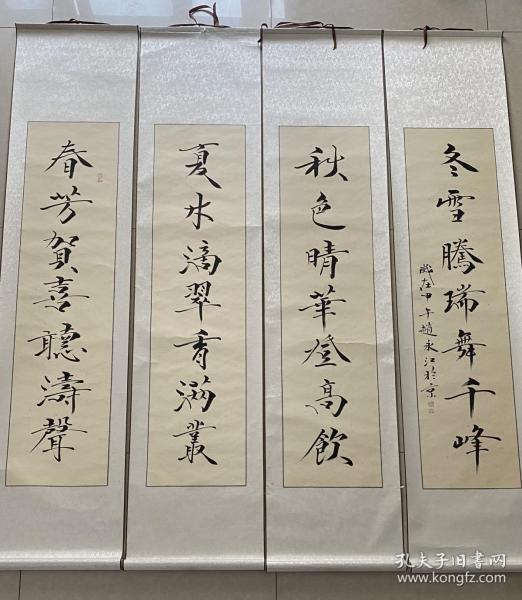 春芳賀喜聽濤聲
夏水滴翠香滿叢
秋色晴華登高飲
冬雪騰瑞舞千峰
歲在甲午趙永江於京
孔夫子旧书网
www.kongfz.com